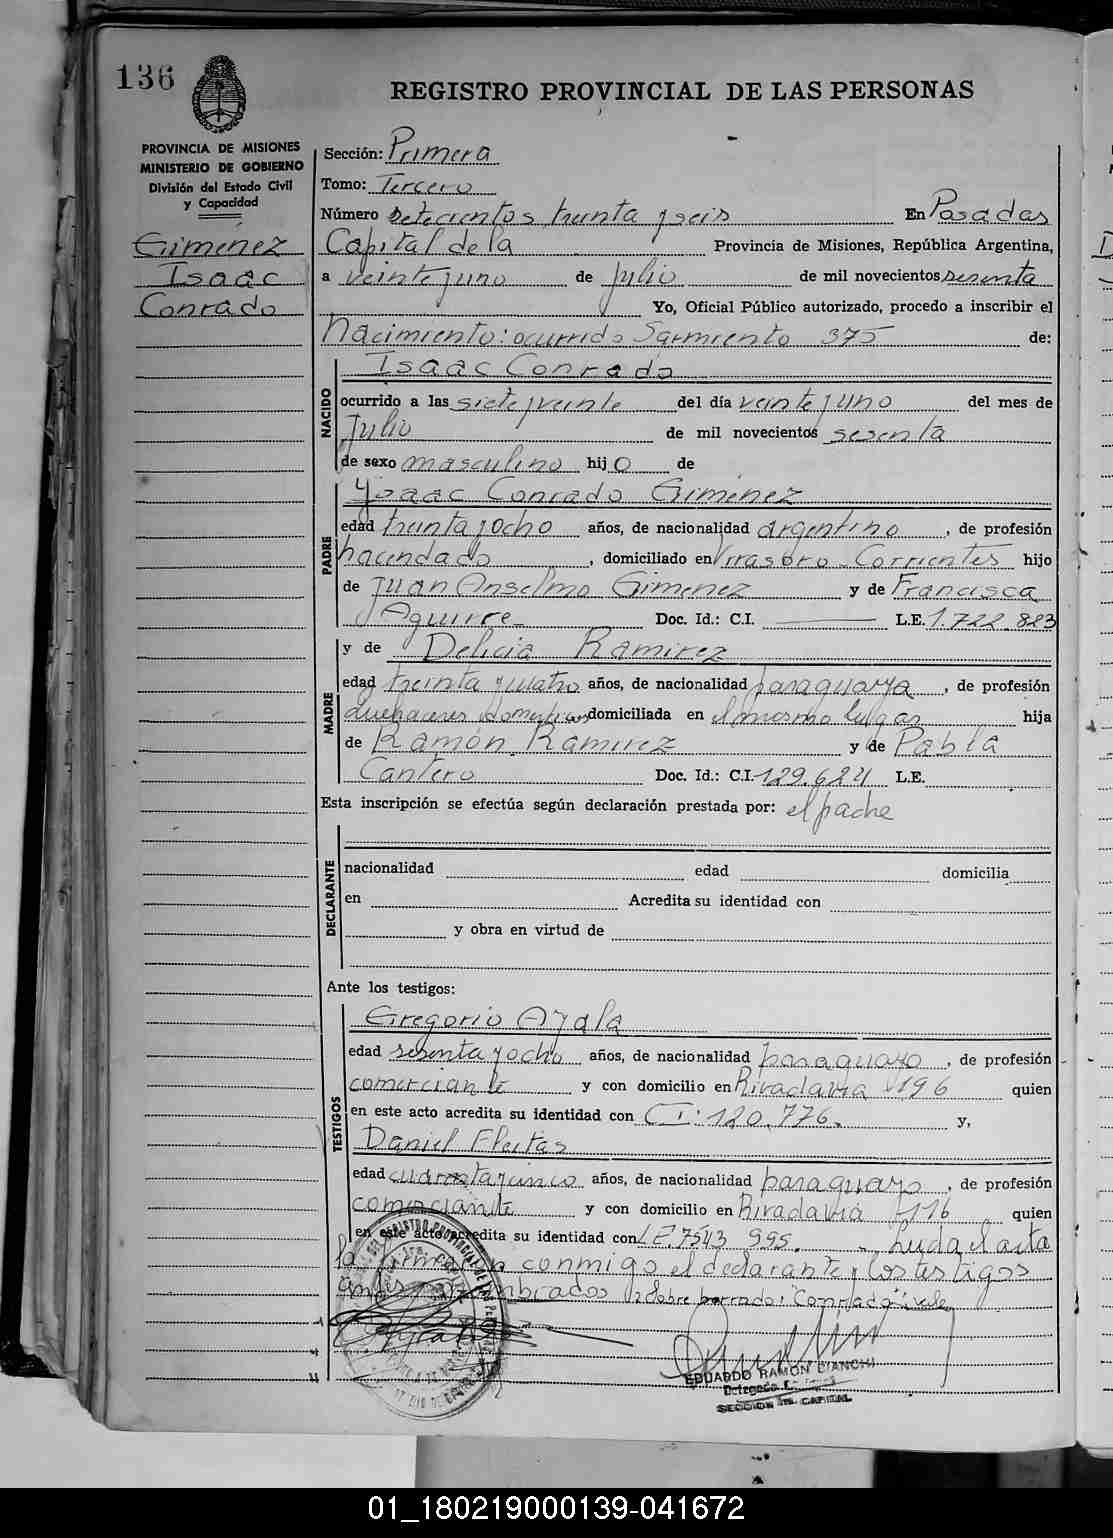 136
REGISTRO PROVINCIAL DE LAS PERSONAS
PROVINCIA DE MISIONES
MINISTERIO DE GOBIERNO
División del Estado Civil
y Capacidad
Gimenez
Isaac
Conrado
Sección: Primera
Tomo: Tercero
Número Setecientos treinta y seis En Posadas
Capital de la Provincia de Misiones, República Argentina,
a veinte y uno de Julio de mil novecientos sesenta
Yo, Oficial Público autorizado, procedo a inscribir el
Nacimiento: ocurrido Sarmiento 375 de:
NACIDO
Isaac Conrado
ocurrido a las siete y veinte del día veinte y uno del mes de
Julio de mil novecientos sesenta
de sexo masculino hijo de
PADRE
Ysaac Conrado Gimenez
edad treinta y ocho años, de nacionalidad argentino, de profesión
hacendado, domiciliado en Virasoro - Corrientes hijo
de Juan Anselmo Gimenez y de Francisca
Aguirre Doc. Id.: C.I. L.E. 1.722.823
MADRE
y de Delicia Ramirez
edad treinta y cuatro años, de nacionalidad paraguaya, de profesión
quehaceres domesticos domiciliada en el mismo lugar hija
de Ramón Ramirez y de Pabla
Cantero Doc. Id.: C.I. 129.624 L.E.
Esta inscripción se efectúa según declaración prestada por: el padre
DECLARANTE
nacionalidad edad domicilia
en Acredita su identidad con
y obra en virtud de
Ante los testigos:
TESTIGOS
Gregorio Ayala
edad sesenta y ocho años, de nacionalidad paraguayo, de profesión
comerciante y con domicilio en Rivadavia 196 quien
en este acto acredita su identidad con CI: 120.776. y,
Daniel Fleitas
edad cuarenta y cinco años, de nacionalidad paraguayo, de profesión
comerciante y con domicilio en Rivadavia 116 quien
en este acto acredita su identidad con LE. 7543 995. Leida el acta
la firman conmigo el declarante y los testigos
antes nombrados Sobre borrado: "Conrado" vale
EDUARDO RAMON BIANCHI
Delegado
SECCION CAPITAL
01_180219000139-041672